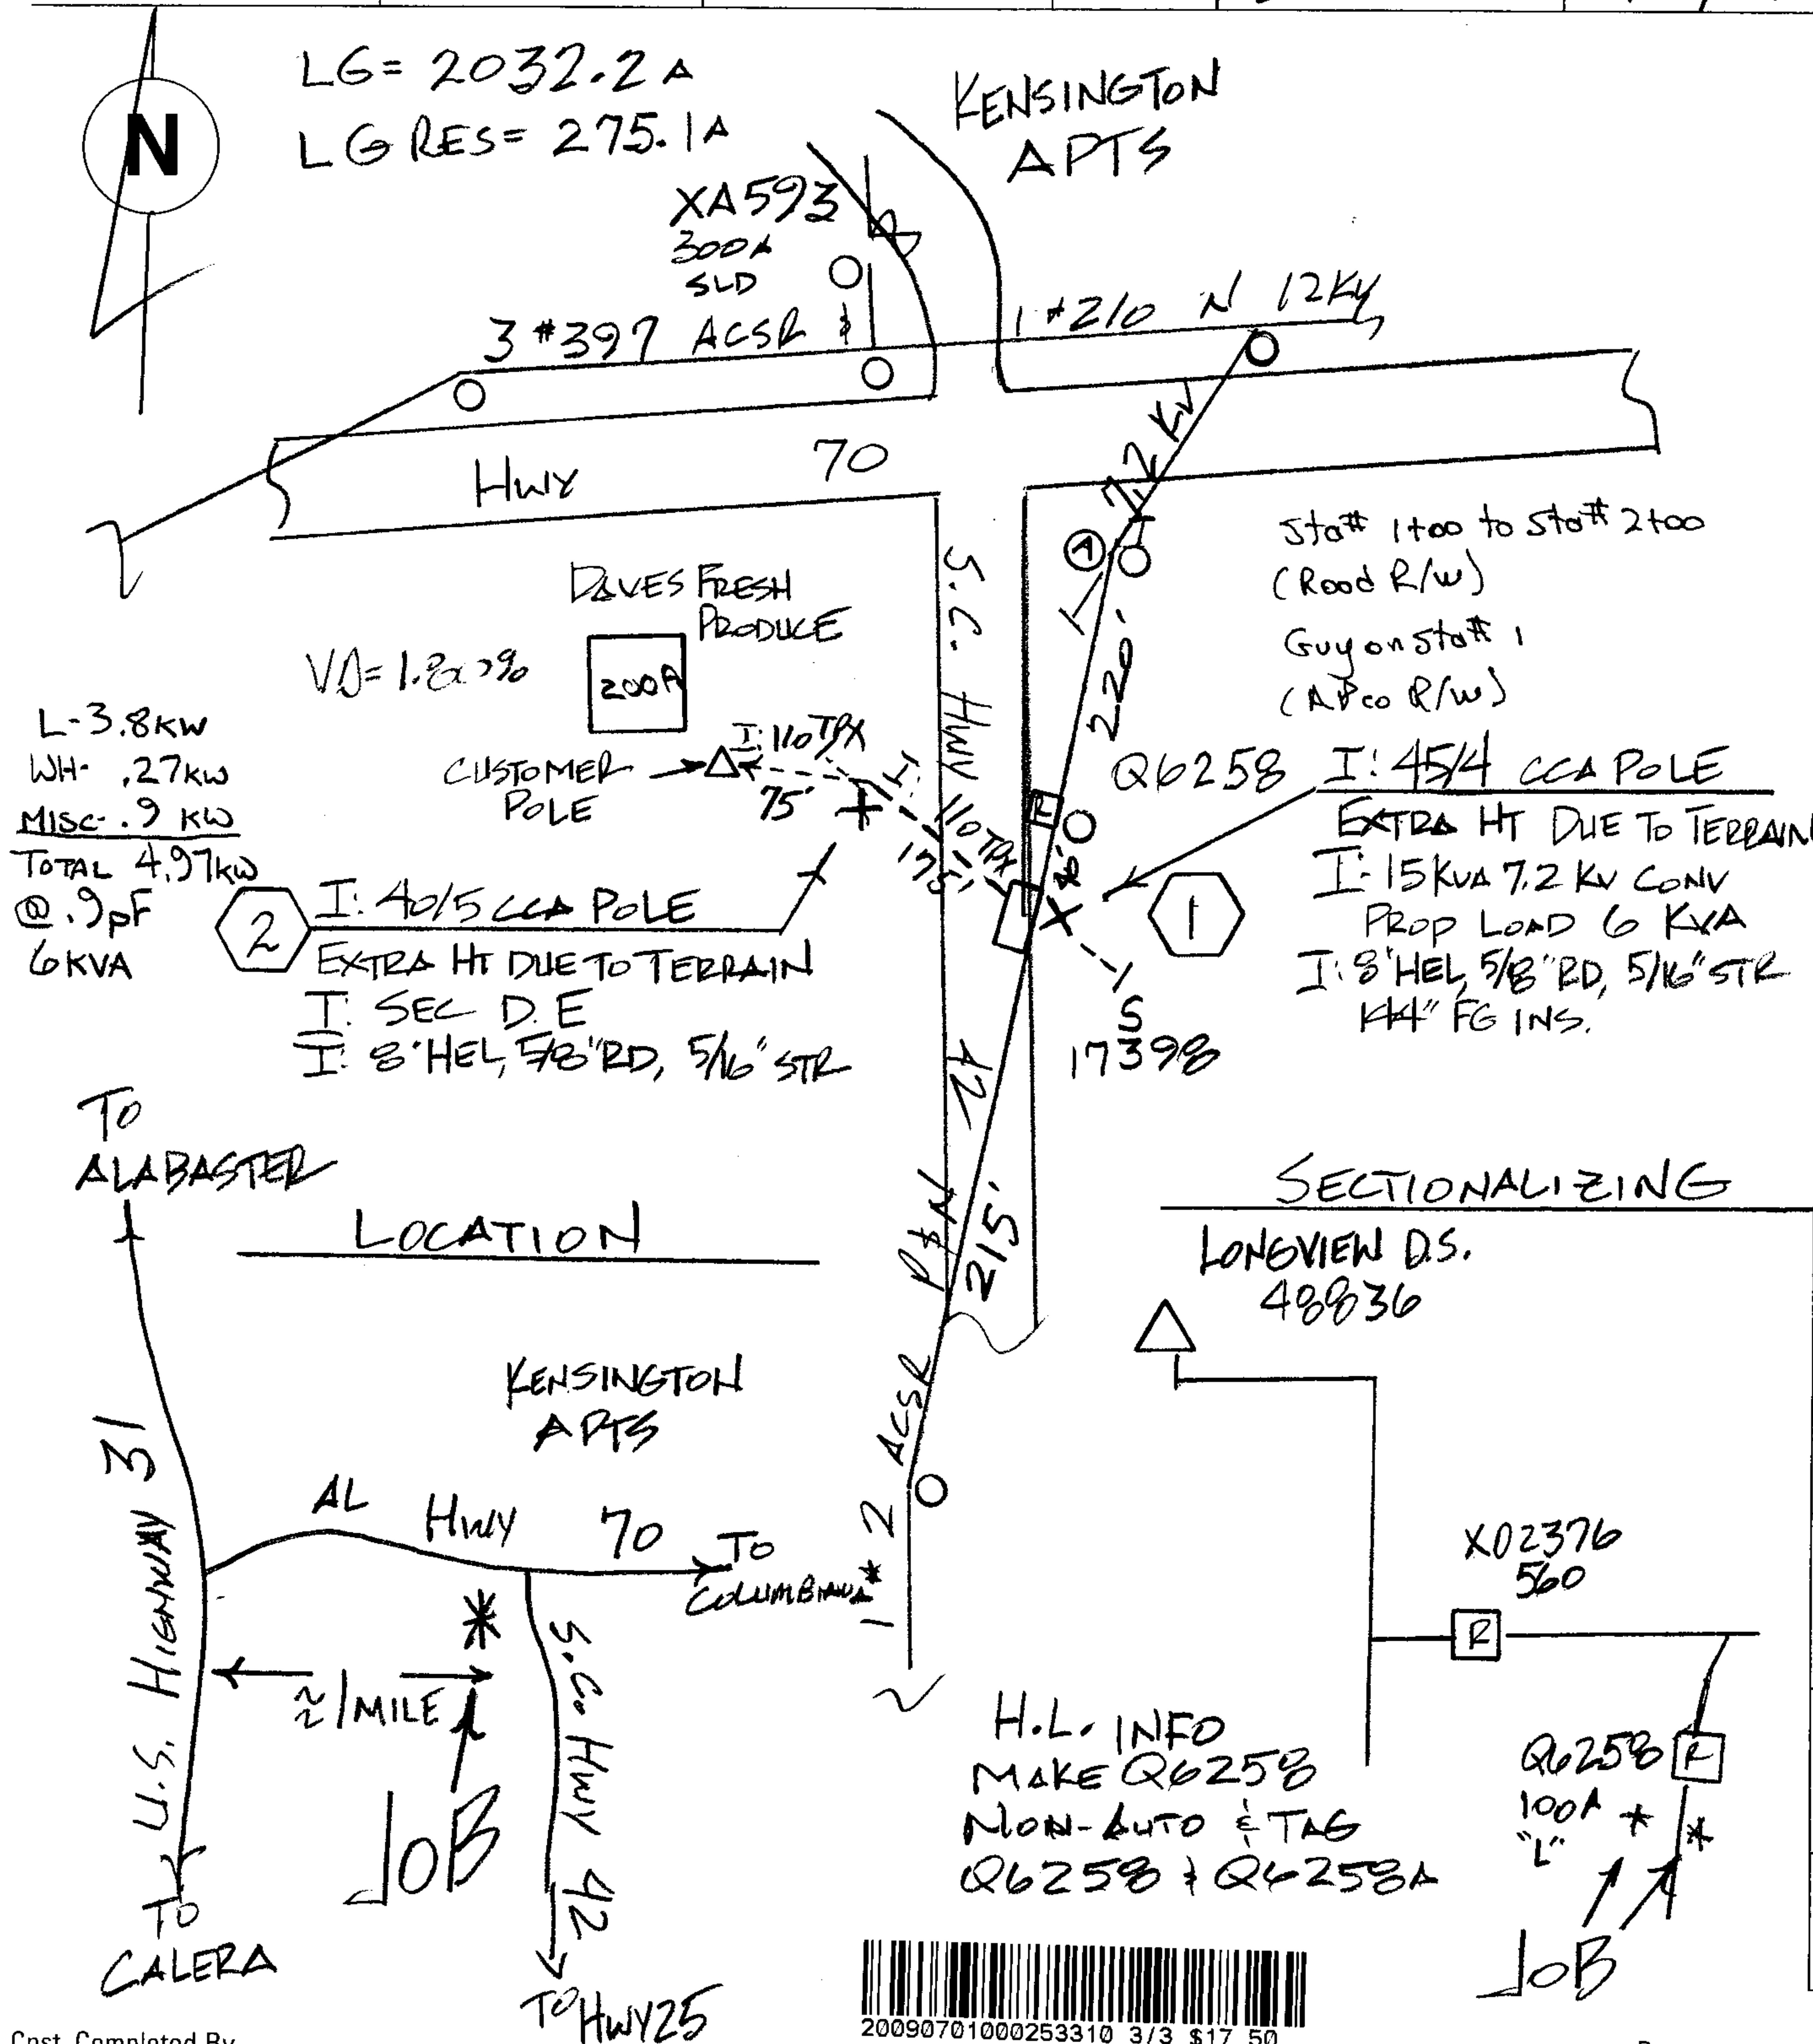 LG = 2032.2 A
LG RES = 275.1A
N
KENSINGTON
APTS
XA593
300A
SLD
3 #397 ACSR &
1 #2/0 N 12KV
HWY 70
7.2 KV
A
Sta# 1+00 to Sta# 2+00
(Road R/W)
Guy on Sta# 1
(APco R/W)
DAVES FRESH
PRODUCE
200A
VD=
L-3.8KW
WH- .27KW
MISC- .9 KW
TOTAL 4.97KW
@ .9pF
6KVA
CUSTOMER
POLE
I: 1/0 TPX
75'
I: 1/0 TPX
175'
S.C. HWY 42
220'
Q6258
R
X
I: 45/4 CCA POLE
EXTRA HT DUE TO TERRAIN
I: 15 KVA 7.2 KV CONV
PROP LOAD 6 KVA
I: 8' HEL, 5/8" RD, 5/16" STR
FG INS.
1
S
17398
2
I: 40/5 CCA POLE
EXTRA HT DUE TO TERRAIN
I: SEC D.E
I: 8' HEL, 5/8" RD, 5/16" STR
215'
1 #2 ACSR P & N
TO
ALABASTER
LOCATION
KENSINGTON
APTS
U.S. HIGHWAY 31
AL HWY 70
TO
COLUMBIANA
≈ 1 MILE
JOB
S. Co HWY 42
TO
CALERA
TO HWY 25
SECTIONALIZING
LONGVIEW D.S.
48836
X02376
560
R
Q6258
R
100A
"L"
JOB
H.L. INFO
MAKE Q6258
NON-AUTO & TAG
Q6258 & Q6258A
20090701000253310 3/3 $17.50
Cost Completed By